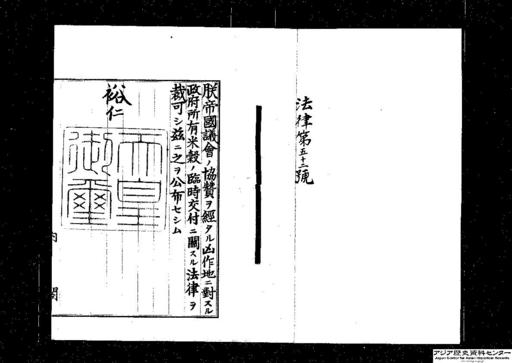 法律第五十二號
朕帝國議會ノ協贊ヲ經タル凶作地ニ對スル
政府所有米穀ノ臨時交付ニ關スル法律ヲ
裁可シ玆ニ之ヲ公布セシム
裕仁
天皇
御璽
内閣
アジア歴史資料センター
Japan Center for Asian Historical Records